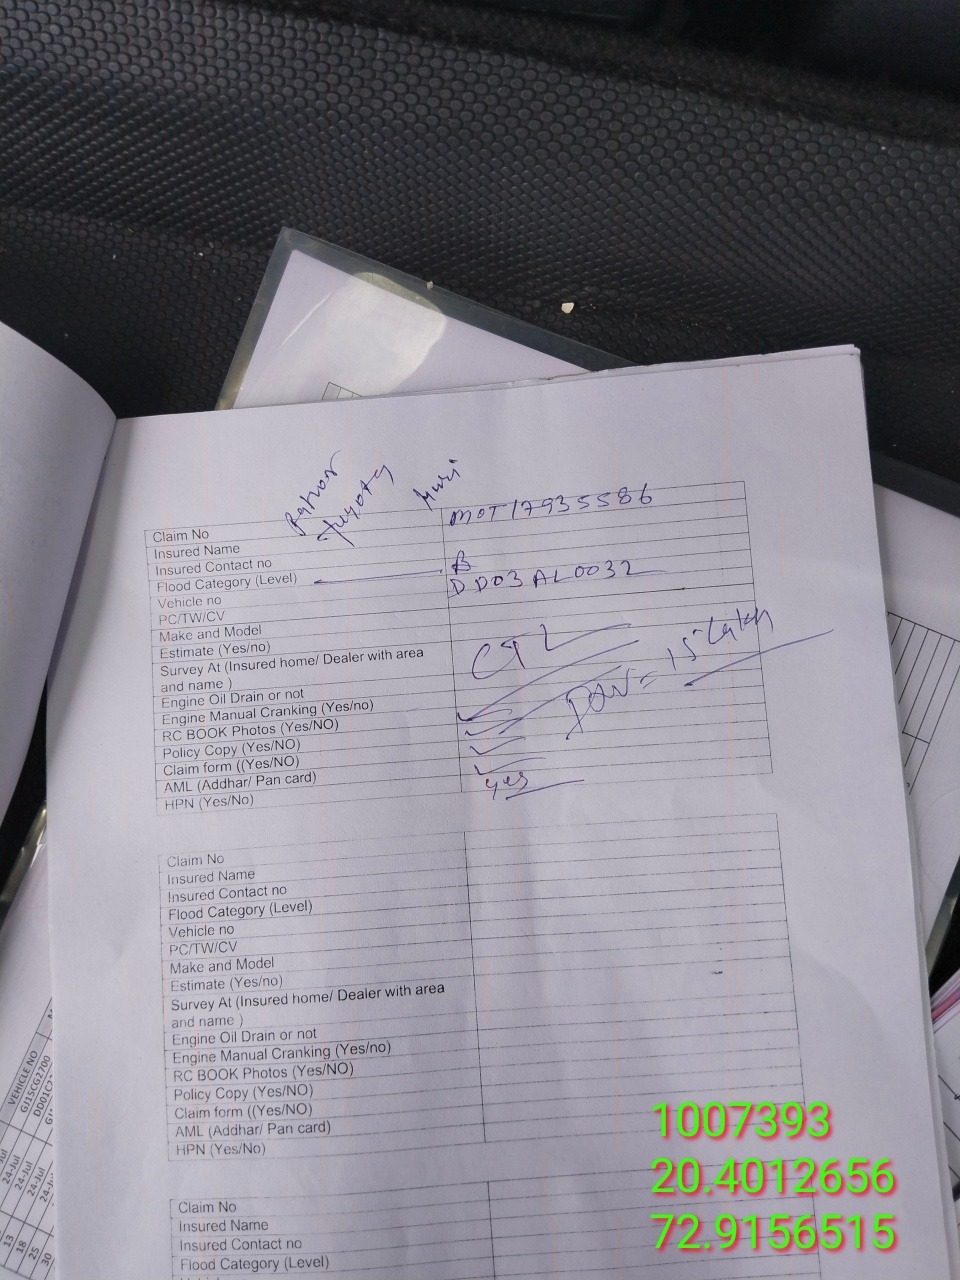 Claim No MOT17935586
Insured Name
Insured Contact no
Flood Category (Level) B
Vehicle no DD03AL0032
PC/TW/CV
Make and Model
Estimate (Yes/no)
Survey At (Insured home/ Dealer with area
and name )
Engine Oil Drain or not
Engine Manual Cranking (Yes/no)
RC BOOK Photos (Yes/NO)
Policy Copy (Yes/NO)
Claim form ((Yes/NO)
AML (Addhar/ Pan card)
HPN (Yes/No) yes
Claim No
Insured Name
Insured Contact no
Flood Category (Level)
Vehicle no
PC/TW/CV
Make and Model
Estimate (Yes/no)
Survey At (Insured home/ Dealer with area
and name )
Engine Oil Drain or not
Engine Manual Cranking (Yes/no)
RC BOOK Photos (Yes/NO)
Policy Copy (Yes/NO)
Claim form ((Yes/NO)
AML (Addhar/ Pan card)
HPN (Yes/No)
Claim No
Insured Name
Insured Contact no
Flood Category (Level)
VEHICLE NO
GJ15CG2700
24-Jul
24-Jul
24-Jul
13
18
25
30
1007393
20.4012656
72.9156515